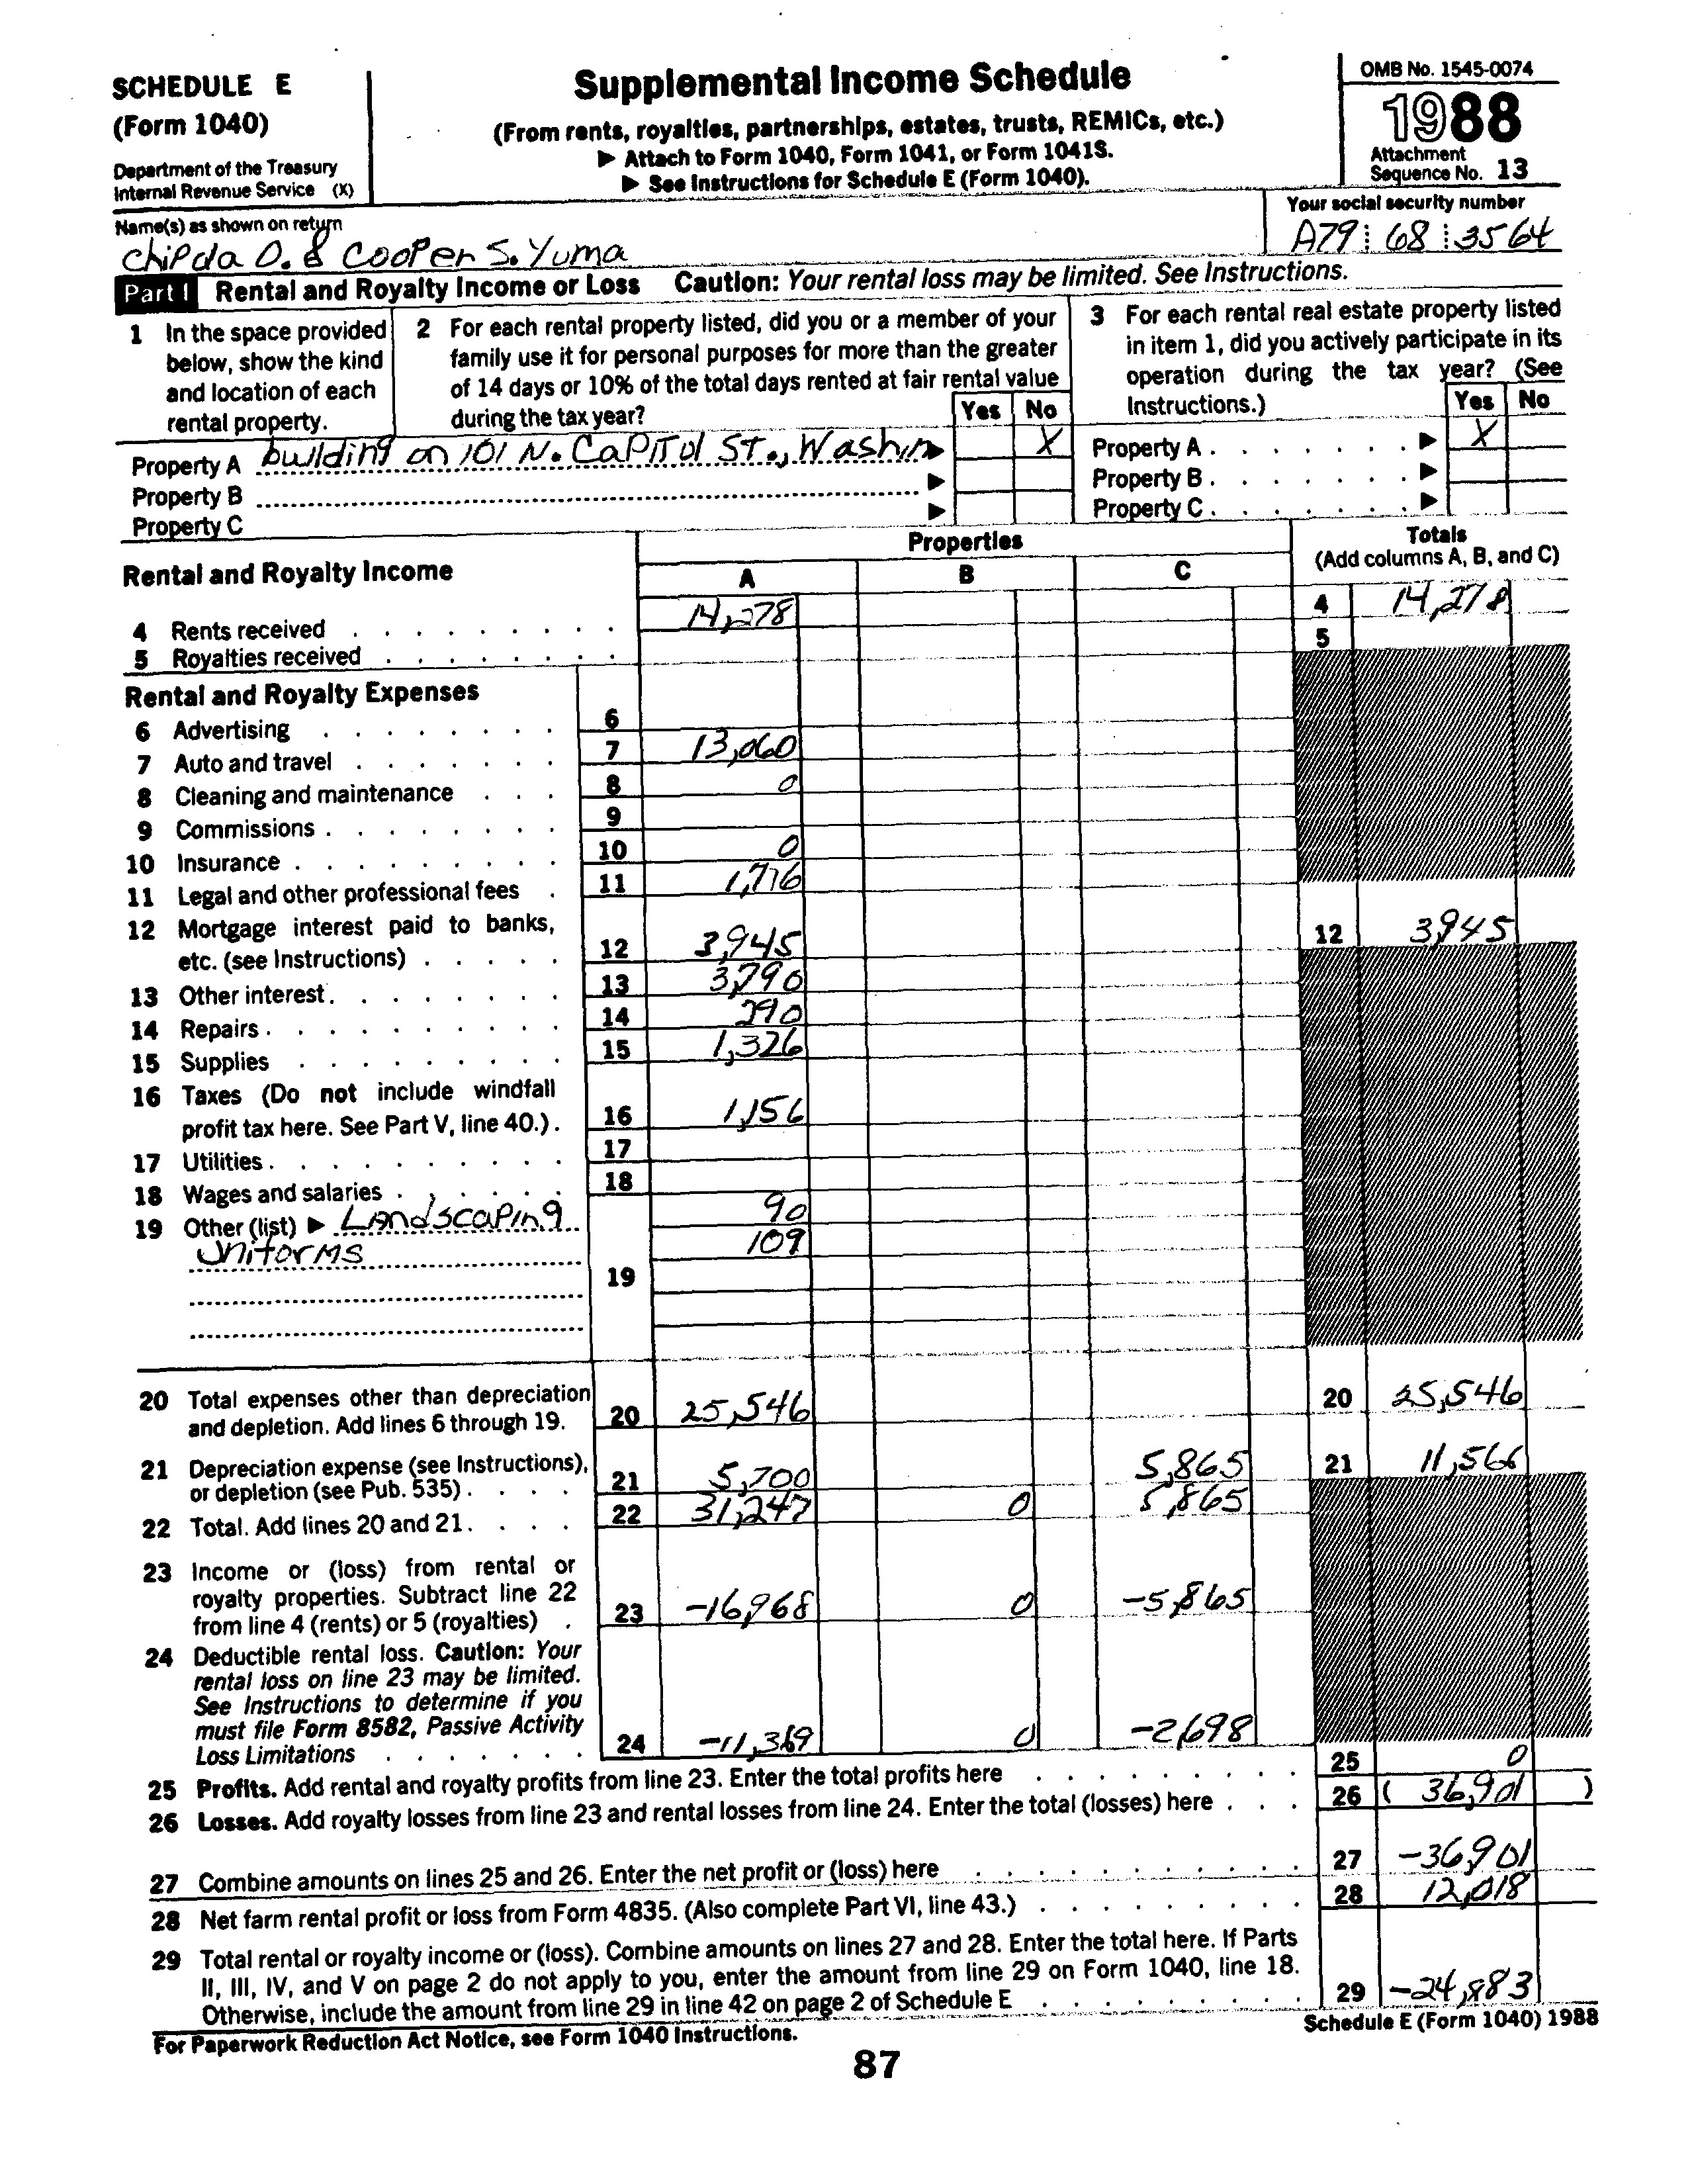 SCHEDULE E
(Form 1040)
Department of the Treasury
Internal Revenue Service (X)
Supplemental Income Schedule
(From rents, royalties, partnerships, estates, trusts, REMICs, etc.)
▶ Attach to Form 1040, Form 1041, or Form 1041S.
▶ See Instructions for Schedule E (Form 1040).
OMB No. 1545-0074
1988
Attachment
Sequence No. 13
Name(s) as shown on return
Chipda O. & Cooper S. Yuma
Your social security number
A79 68 3564
Part I Rental and Royalty Income or Loss Caution: Your rental loss may be limited. See Instructions.
1 In the space provided
below, show the kind
and location of each
rental property.
2 For each rental property listed, did you or a member of your
family use it for personal purposes for more than the greater
of 14 days or 10% of the total days rented at fair rental value
during the tax year?
Yes No
3 For each rental real estate property listed
in item 1, did you actively participate in its
operation during the tax year? (See
Instructions.)
Yes No
Property A building on 101 N. CaPITol ST., Washin ▶ X
Property B ▶
Property C ▶
Property A . . . . . . . ▶ X
Property B . . . . . . . ▶
Property C . . . . . . . ▶
Rental and Royalty Income
Properties
A B C
Totals
(Add columns A, B, and C)
4 Rents received 14,278 4 14,278
5 Royalties received 5
Rental and Royalty Expenses
6 Advertising 6
7 Auto and travel 7 13,060
8 Cleaning and maintenance 8 0
9 Commissions 9
10 Insurance 10 0
11 Legal and other professional fees 11 1,776
12 Mortgage interest paid to banks,
etc. (see Instructions) 12 3,945 12 3,945
13 Other interest 13 3,790
14 Repairs 14 290
15 Supplies 15 1,326
16 Taxes (Do not include windfall
profit tax here. See Part V, line 40.) 16 1,156
17 Utilities 17
18 Wages and salaries 18
19 Other (list) ▶ Landscaping 90
Uniforms 109
19
20 Total expenses other than depreciation
and depletion. Add lines 6 through 19. 20 25,546 20 25,546
21 Depreciation expense (see Instructions),
or depletion (see Pub. 535) 21 5,700 5,865 21 11,566
22 Total. Add lines 20 and 21. 22 31,247 0 5,865
23 Income or (loss) from rental or
royalty properties. Subtract line 22
from line 4 (rents) or 5 (royalties) 23 -16,968 0 -5,865
24 Deductible rental loss. Caution: Your
rental loss on line 23 may be limited.
See Instructions to determine if you
must file Form 8582, Passive Activity
Loss Limitations 24 -11,369 0 -2,698
25 Profits. Add rental and royalty profits from line 23. Enter the total profits here 25 0
26 Losses. Add royalty losses from line 23 and rental losses from line 24. Enter the total (losses) here 26 ( 36,901 )
27 Combine amounts on lines 25 and 26. Enter the net profit or (loss) here 27 -36,901
28 Net farm rental profit or loss from Form 4835. (Also complete Part VI, line 43.) 28 12,018
29 Total rental or royalty income or (loss). Combine amounts on lines 27 and 28. Enter the total here. If Parts
II, III, IV, and V on page 2 do not apply to you, enter the amount from line 29 on Form 1040, line 18.
Otherwise, include the amount from line 29 in line 42 on page 2 of Schedule E 29 -24,883
For Paperwork Reduction Act Notice, see Form 1040 Instructions.
Schedule E (Form 1040) 1988
87